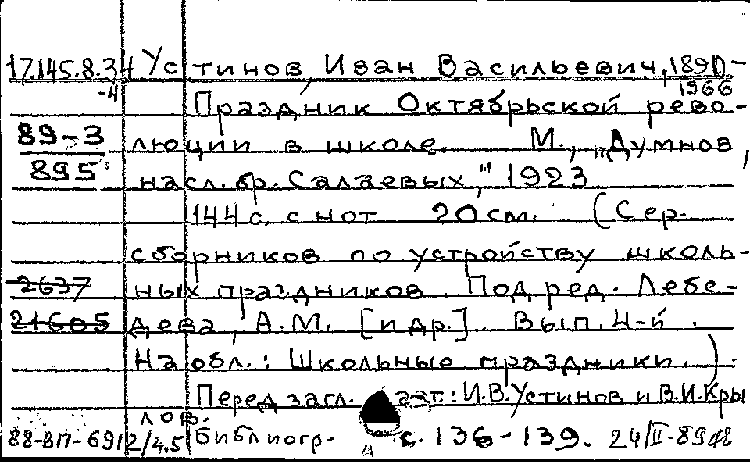 17.145.8.34 Устинов, Иван Васильевич, 1890-
-4 1966
Праздник Октябрьской рево-
89-3 люции в школе. М., „Думнов,
895 насл. бр. Салаевых," 1923
144 с. с нот 20 см. (Сер.
сборников по устройству школь-
2637 ных праздников. Под ред. Лебе-
21605 дева, А.М. [и др.]. Вып. 4-й.
На обл.: Школьные праздники.).
Перед загл. авт: И.В.Устинов и В.И.Кры
лов.
88-ВП-6912/4.5 Библиогр. с. 136-139. 24/II-89